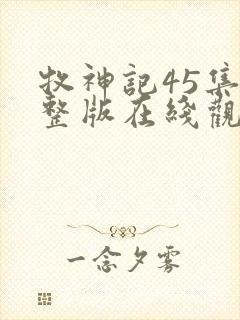 牧神記45集
整版在綫觀
一念夕雾